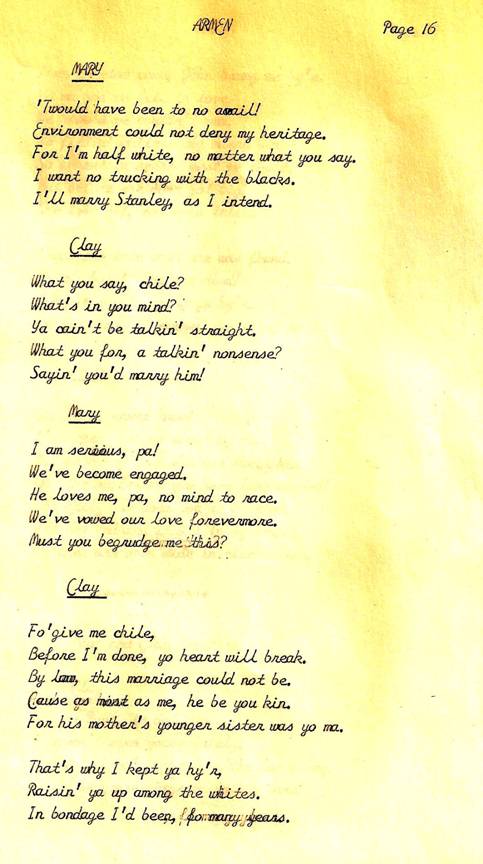 ARMEN
Page 16
MARY
'Twould have been to no avail!
Environment could not deny my heritage.
For I'm half white, no matter what you say.
I want no trucking with the blacks.
I'll marry Stanley, as I intend.
Clay
What you say, chile?
What's in you mind?
Ya cain't be talkin' straight.
What you for, a talkin' nonsense?
Sayin' you'd marry him!
Mary
I am serious, pa!
We've become engaged.
He loves me, pa, no mind to race.
We've vowed our love forevermore.
Must you begrudge me this?
Clay
Fo'give me chile,
Before I'm done, yo heart will break.
By law, this marriage could not be.
Cause as most as me, he be you kin.
For his mother's younger sister was yo ma.
That's why I kept ya hy'r,
Raisin' ya up among the whites.
In bondage I'd been, for many years.